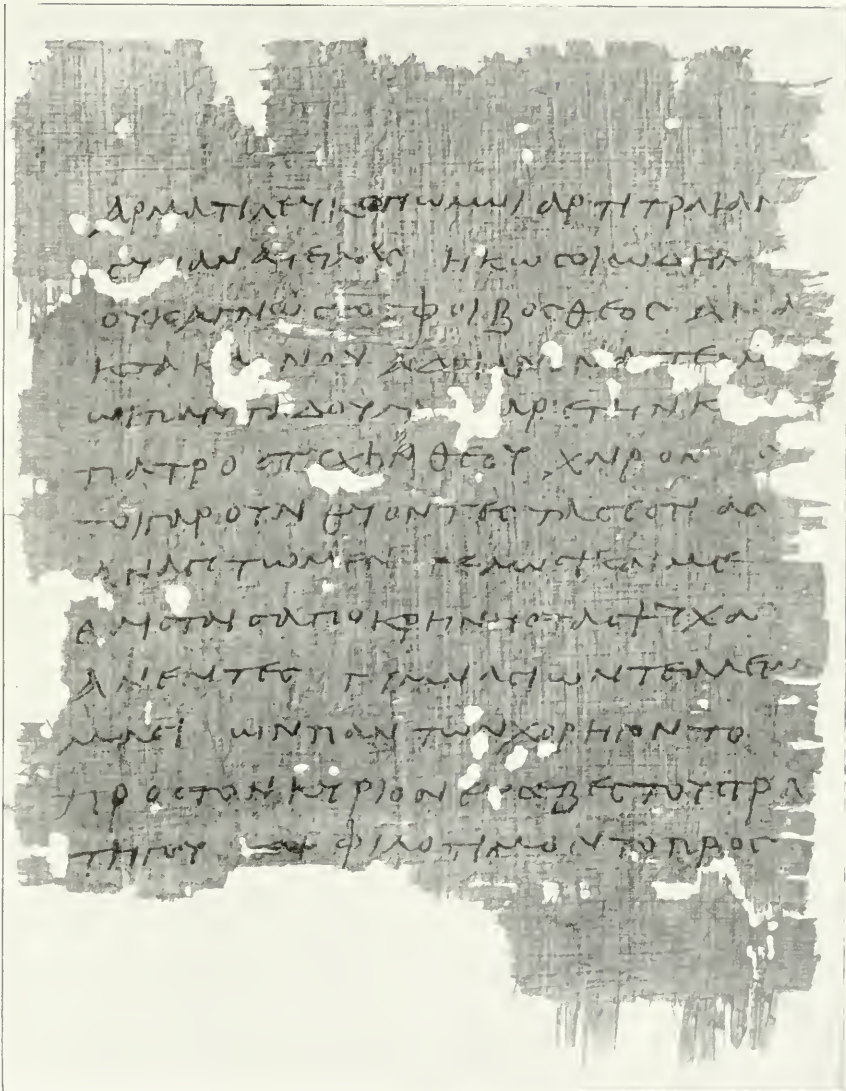 ΑΡΜΑΤΙ ΛΕΥΚΟΠΩΛΩΙ ΑΡΤΙ ΤΡΑΙΑΝ
ΣΥΝΑΝΑΤΕΙΛΑΣ ΗΚΩ ΣΟΙ Ω ΔΗΜ
ΟΥΚ ΑΓΝΩΣΤΟΣ ΦΟΙΒΟΣ ΘΕΟΣ ΑΝΑ
ΚΤΑ ΚΑΙΝΟΝ ΑΔΡΙΑΝΟΝ ΑΓΓΕΛΛ
ΩΙ ΠΑΝΤΑ ΔΟΥΛΑ ΑΡΕΤΗΝ Κ
ΠΑΤΡΟΣ ΤΥΧΗΝ ΘΕΟΥ ΧΑΙΡΟΝ
ΤΟΙΓΑΡΟΥΝ ΘΥΟΝΤΕΣ ΤΑΣ ΕΣΤΙΑΣ
ΑΝΑΠΤΩΜΕΝ ΓΕΛΩΣΙ ΚΑΙ ΜΕ
ΘΑΙΣ ΤΑΙΣ ΑΠΟ ΚΡΗΝΗΣ ΤΑΣ ΨΥΧΑΣ
ΑΝΕΝΤΕΣ ΓΥΜΝΑΣΙΩΝ ΤΕ ΑΛΕΙΜ
ΜΑΣΙ ΩΝ ΠΑΝΤΩΝ ΧΟΡΗΓΟΝ ΤΟ
ΠΡΟΣ ΤΟΝ ΚΥΡΙΟΝ ΕΥΣΕΒΕΣ ΤΟΥ ΣΤΡΑ
ΤΗΓΟΥ ΦΙΛΟΤΙΜΟΝ ΤΟ ΠΡΟΣ